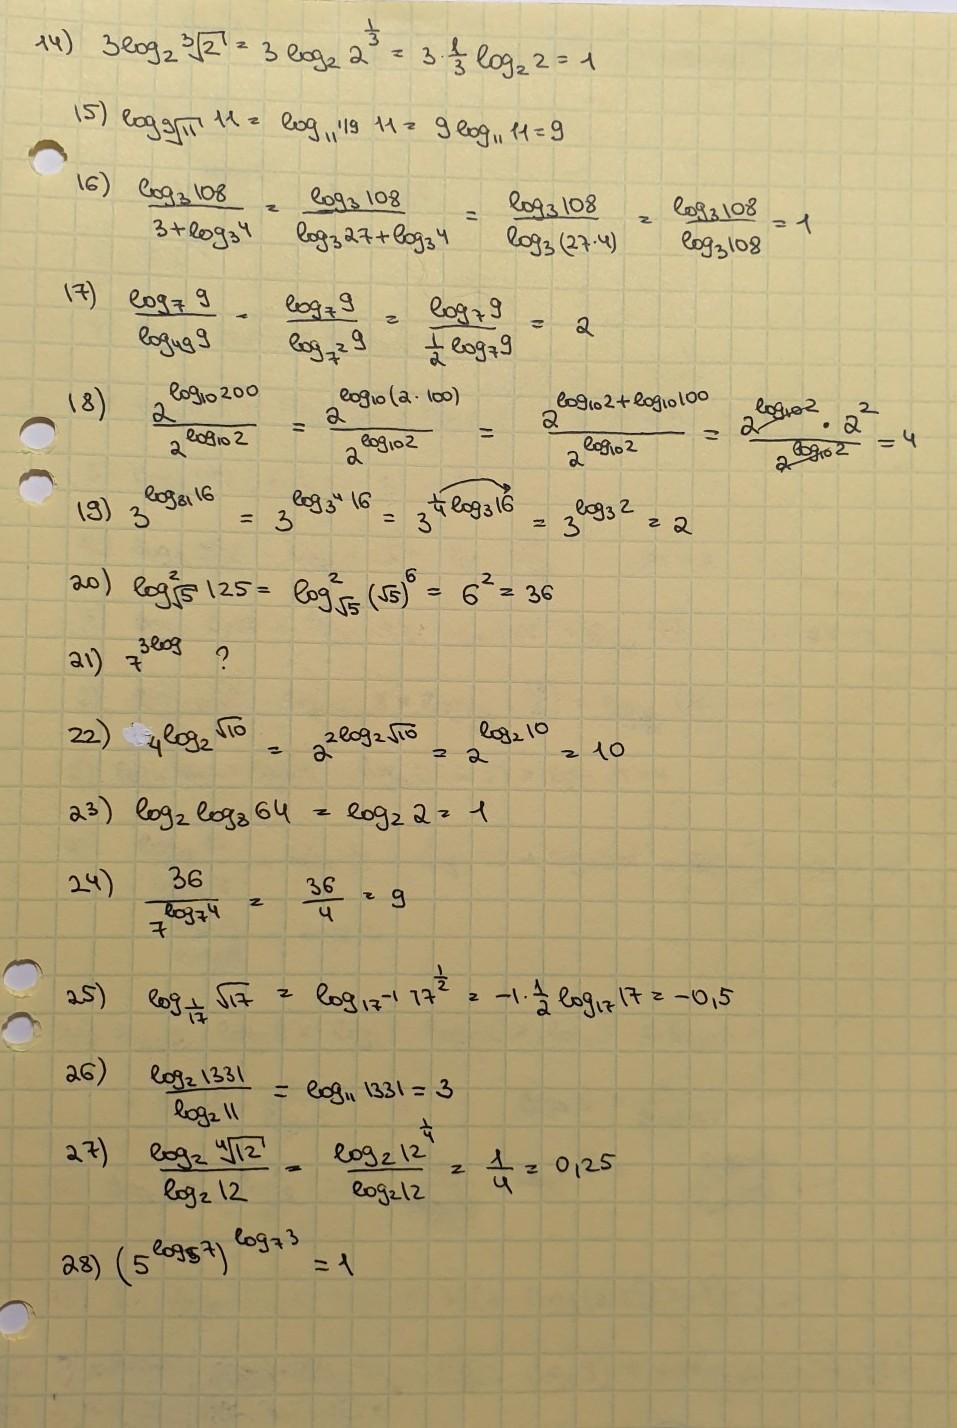 14) 3log₂ ³√2 = 3 log₂ 2^(1/3) = 3·1/3 log₂ 2 = 1
15) log_(⁹√11) 11 = log_(11^(1/9)) 11 = 9 log₁₁ 11 = 9
16) log₃108 / (3+log₃4) = log₃108 / (log₃27+log₃4) = log₃108 / log₃(27·4) = log₃108 / log₃108 = 1
17) log₇ 9 / log₄₉ 9 = log₇ 9 / log_(7²) 9 = log₇ 9 / (1/2 log₇ 9) = 2
18) 2^(log₁₀200) / 2^(log₁₀2) = 2^(log₁₀(2·100)) / 2^(log₁₀2) = 2^(log₁₀2+log₁₀100) / 2^(log₁₀2) = 2^(log₁₀2) · 2² / 2^(log₁₀2) = 4
19) 3^(log₈₁16) = 3^(log_(3⁴) 16) = 3^(1/4 log₃16) = 3^(log₃2) = 2
20) log²_(√5) 125 = log²_(√5) (√5)⁶ = 6² = 36
21) 7^(3log) ?
22) 4^(log₂√10) = 2^(2log₂√10) = 2^(log₂10) = 10
23) log₂ log₈ 64 = log₂ 2 = 1
24) 36 / 7^(log₇4) = 36/4 = 9
25) log_(1/17) √17 = log_(17⁻¹) 17^(1/2) = -1·1/2 log₁₇ 17 = -0,5
26) log₂1331 / log₂11 = log₁₁ 1331 = 3
27) log₂ ⁴√12 / log₂ 12 = log₂ 12^(1/4) / log₂12 = 1/4 = 0,25
28) (5^(log₅7))^(log₇3) = 1